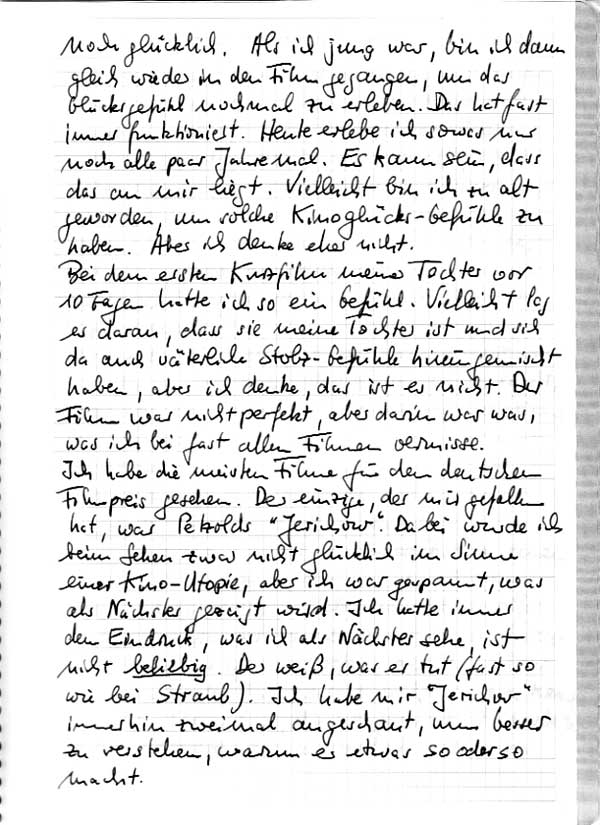 noch glücklich. Als ich jung war, bin ich dann
gleich wieder in den Film gegangen, um das
Glücksgefühl nochmal zu erleben. Das hat fast
immer funktioniert. Heute erlebe ich sowas nur
noch alle paar Jahre mal. Es kann sein, dass
das an mir liegt. Vielleicht bin ich zu alt
geworden, um solche Kinoglücks-Gefühle zu
haben. Aber ich denke eher nicht.
Bei dem ersten Kurzfilm meiner Tochter vor
10 Tagen hatte ich so ein Gefühl. Vielleicht lag
es daran, dass sie meine Tochter ist und sich
da auch väterliche Stolz-Gefühle hineingemischt
haben, aber ich denke, das ist es nicht. Der
Film war nicht perfekt, aber darin war was,
was ich bei fast allen Filmen vermisse.
Ich habe die meisten Filme für den deutschen
Filmpreis gesehen. Der einzige, der mir gefallen
hat, war Petzolds "Jerichow". Dabei wurde ich
beim Sehen zwar nicht glücklich im Sinne
einer Kino-Utopie, aber ich war gespannt, was
als Nächstes gezeigt wird. Ich hatte immer
den Eindruck, was ich als Nächstes sehe, ist
nicht beliebig. Der weiß, was er tut (fast so
wie bei Straub). Ich habe mir "Jerichow"
immerhin zweimal angeschaut, um besser
zu verstehen, warum er etwas so oder so
macht.